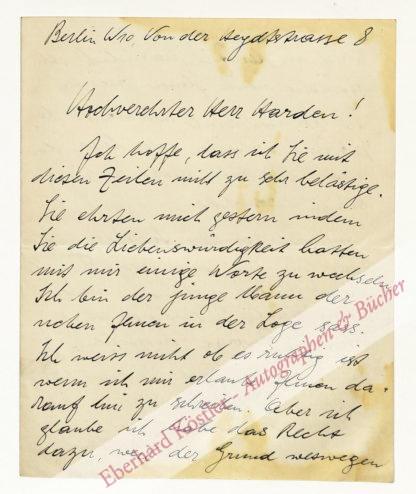 Berlin W10, Von der Heydtstrasse 8
Hochverehrter Herr Harden!
Ich hoffe, dass ich Sie mit
diesen Zeilen nicht zu sehr belästige.
Sie ehrten mich gestern indem
Sie die Liebenswürdigkeit hatten
mit mir einige Worte zu wechseln.
Ich bin der junge Mann der
neben Ihnen in der Loge sass.
Ich weiss nicht ob es richtig ist
wenn ich mir erlaube Ihnen da-
rauf hin zu schreiben. Aber ich
glaube ich habe das Recht
dazu, der Grund weswegen
Eberhard Köstler - Autographen & Bücher